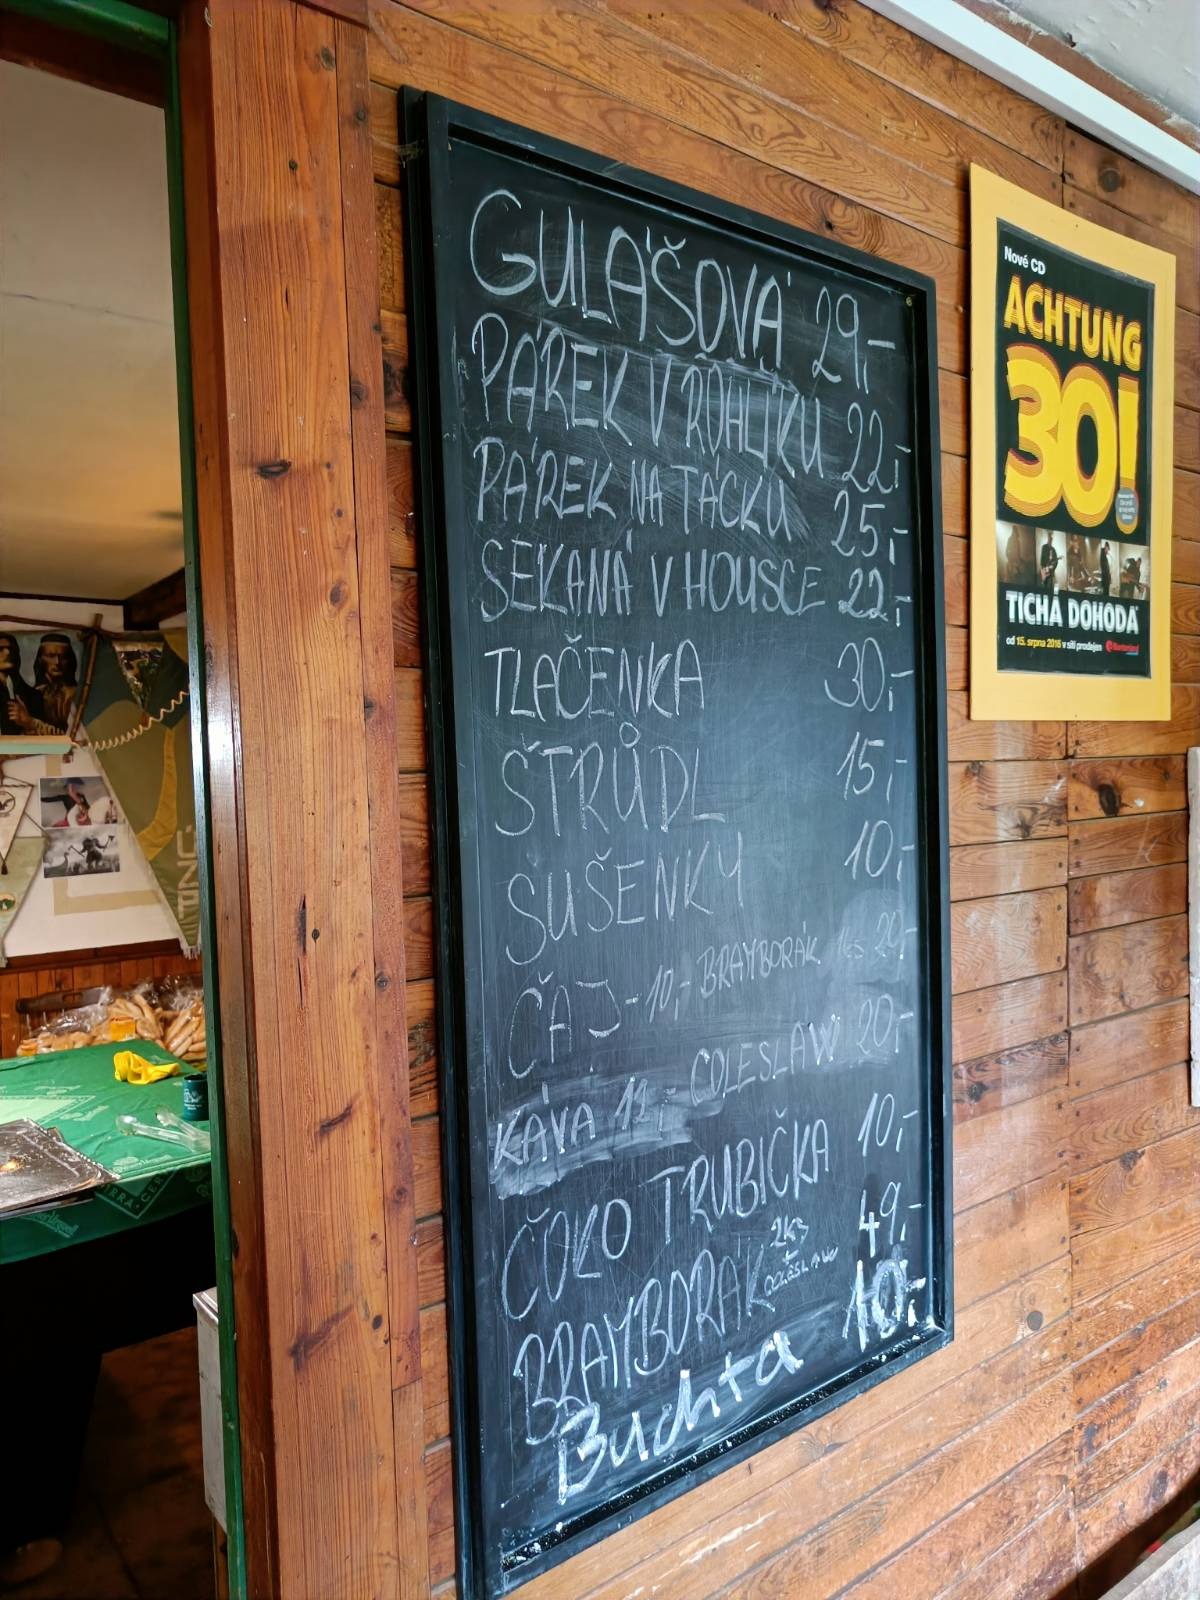 GULÁŠOVÁ 29,-
PÁREK V ROHLÍKU 22,-
PÁREK NA TÁCKU 25,-
SEKANÁ V HOUSCE 22,-
TLAČENKA 30,-
ŠTRŮDL 15,-
SUŠENKY 10,-
ČAJ - 10,- BRAMBORÁK 1KS 20,-
KÁVA 12,- COLESLAW 20,-
ČOKO TRUBIČKA 10,-
BRAMBORÁK 2KS + COLESLAW 49,-
Buchta 10,-
Nové CD
ACHTUNG
30!
TICHÁ DOHODA
od 15. srpna 2016 v síti prodejen